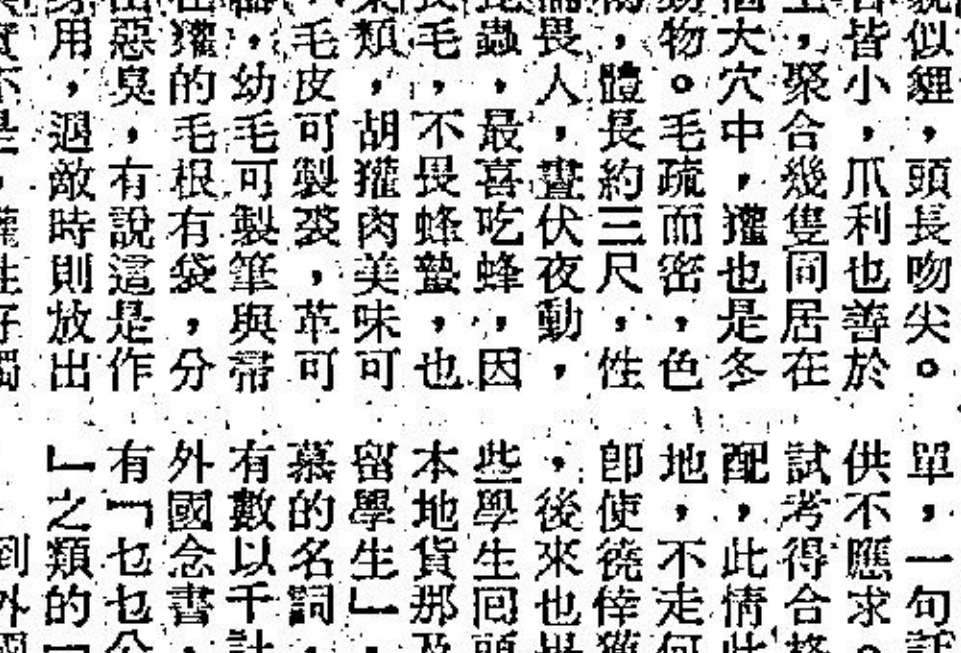 似貍，頭長吻尖。
皆小，爪利也善於
，聚合幾隻同居在
大穴中，獾也是冬
物。毛疏而密，色
，體長約三尺，性
畏人，晝伏夜動，
蟲，最喜吃蜂，因
毛，不畏蜂螫，也
類，胡獾肉美味可
毛皮可製裘，革可
，幼毛可製筆與帚
獾的毛根有袋，分
惡臭，有說這是作
用，遇敵時則放出
單，一句話
供不應求。
試考得合格
配，此情此
地，不走何
即使徺倖獲
，後來也畢
些學生回頭
本地貨那及
留學生」，
慕的名詞，
有數以千計
外國念書，
有「乜乜公
」之類的「
到外國